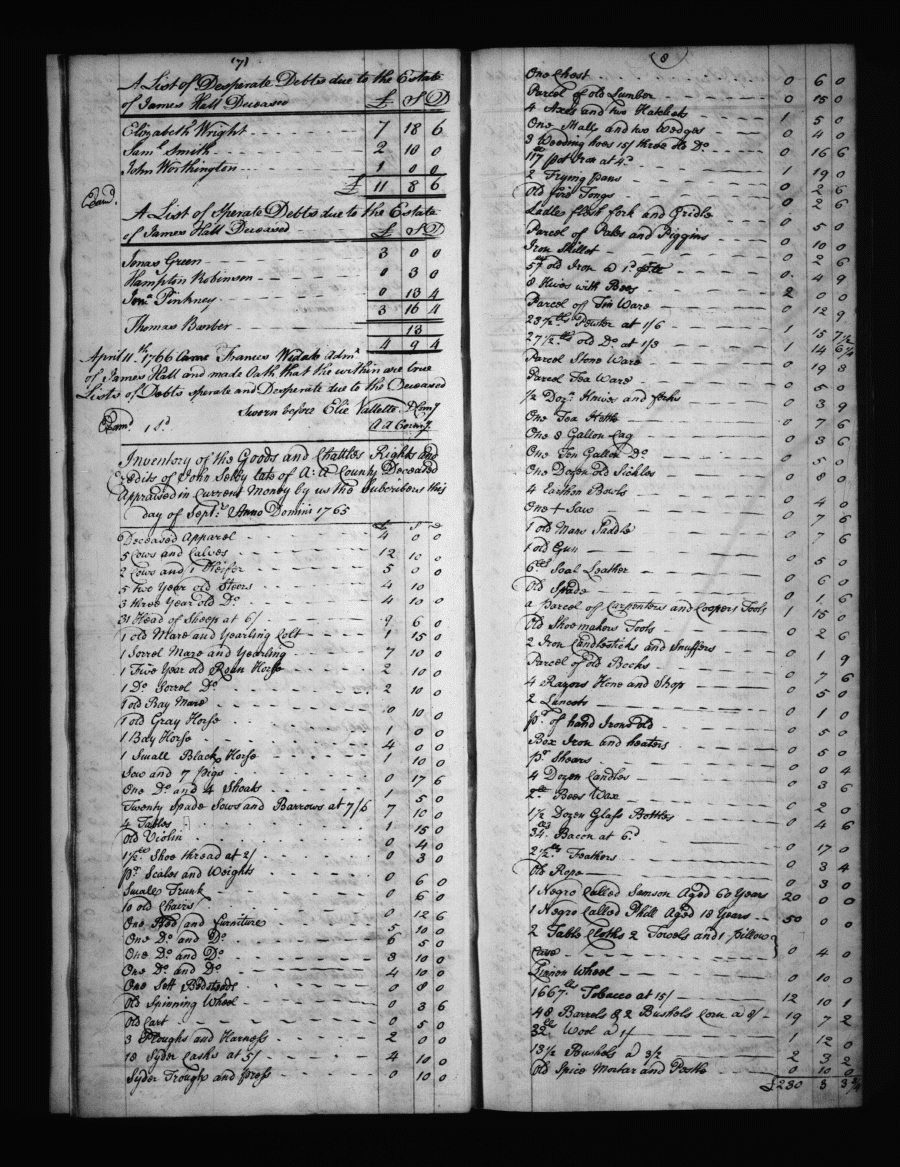 (7)
A List of Desperate Debts due to the Estate
of James Hall Deceased £ S D
Elizabeth Wright 7 18 6
Sam.l Smith 2 10 0
John Worthington 1 0 0
£ 11 8 6
Exam.d
A List of Sperate Debts due to the Estate
of James Hall Deceased £ S D
Jonas Green 3 0 0
Hampton Robinson 0 3 0
Jon.a Pinkney 0 13 4
3 16 4
Thomas Barber 13
4 9 4
April 11.th 1766 Came Frances Adm.x
of James Hall and made Oath that the within are true
Lists of Debts sperate and Desperate due to the Deceased
Sworn before Elie Vallette
Exam.d A A County
Inventory of the Goods and Chattles Rights and
Credits of John Selby late of A: A County Deceased
Appraised in Current Money by us the Subscribers this
day of Sept.r Anno Domini 1765
£ S D
Deceased Apparel 4 0 0
5 Cows and Calves 12 10 0
2 Cows and 1 Heifer 5 0 0
5 Two Year old Steers 4 10
3 three Year old D.o 4 10 0
31 Head of Sheep at 6/ 9 6 0
1 old Mare and Yearling Colt 1 15 0
1 Sorrel Mare and Yearling 7 10 0
1 Five Year old Roan Horse 2 10 0
1 D.o Sorrel D.o 2 10 0
1 old Bay Mare 10 0
1 old Gray Horse 1 0 0
1 Bay Horse 4 0 0
1 Small Black Horse 1 10 0
Sow and 7 pigs 0 17 6
One D.o and 4 Shoats 1 5 0
Twenty Spade Sows and Barrows at 7/6 7 10 0
4 Tables 1 15 0
Old Violin 0 4 0
1½ Shoe thread at 2/ 0 3 0
p.r Scales and Weights 0 6 0
Small Trunk 0 6 0
10 old Chairs 0 12 6
One Bed and furniture 5 10 0
One D.o and D.o 6 5 0
One D.o and D.o 3 10 0
One D.o and D.o 4 10 0
One Sett Bedsteads 0 8 0
Old Spinning Wheel 0 3 6
Old Cart 0 5 0
3 Ploughs and Harness 2 0 0
18 Syder Casks at 5/ 4 10 0
Syder Trough and press 0 10 0
(8)
One Chest 0 6 0
Parcel of old Lumber 0 15 0
4 Axes and two Hatchets 1 5 0
One Mall and two Wedges 0 4 0
3 Weeding hoes 15/ three old D.o 0 16 6
117 pot Iron at 4.d 1 19 0
2 Frying pans 0 2 6
Old fire Tongs 0 2 6
Ladles flesh fork and Gridle 0 5 0
Parcel of Pales and Piggins 0 10 0
Iron Skillet 0 2 6
57 old Iron a 1.d 0 4 9
8 Hives with Bees 2 0 0
Parcel of Tin Ware 0 12 9
23½ Pewter at 1/6 1 15 7½
27½ old D.o at 1/3 1 14 6¾
Parcel Stone Ware 0 19 8
Parcel Tea Ware 0 5 0
½ Doz.n Knives and forks 0 3 9
One Tea Kettle 0 7 6
One 8 Gallon Cag 0 3 6
One Ten Gallon D.o 0 5 0
One Dozen old Sickles 0 8 0
4 Earthen Bowls 0 4 0
One + Saw 0 7 6
1 old Mans Saddle 0 7 6
1 old Gun 0 5 0
6 Soal Leather 0 6 0
Old Spade 0 1 6
a Parcel of Carpenters and Coopers Tools 1 15 0
Old Shoemakers Tools 0 2 6
2 Iron Candlesticks and Snuffers 0 1 9
Parcel of old Books 0 7 6
4 Razors Hone and Strop 0 5 0
2 Lancets 0 1 0
p.r of hand Irons old 0 5 0
Box Iron and heaters 0 5 0
p.r Shears 0 0 4
4 Dozen Candles 0 3 6
Bees Wax 0 2 0
1½ Dozen Glass Bottles 0 4 6
34 Bacon at 6.d 0 17 0
2½ Feathers 0 3 4
Old Rope 0 3 0
1 Negro Called Samson Aged 60 Years 20 0 0
1 Negro Called Phill Aged 18 Years 50 0 0
2 Table Cloths 2 Towels and 1 pillow
Case 0 4 0
Linnen Wheel 0 10 0
1667 Tobacco at 15/ 12 10 1
48 Barrels & 2 Bushels Corn a 8/ 19 7 2
32 Wool a 1/ 1 12 0
13½ Bushels a 3/2 2 3 2
Old Spice Mortar and Pestle 0 10 0
£230 3 3¾